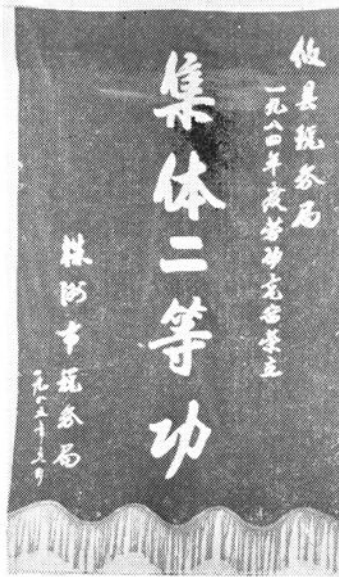 攸县税务局
一九八四年度劳动竞赛荣立
集体二等功
株洲市税务局
一九八五年三月